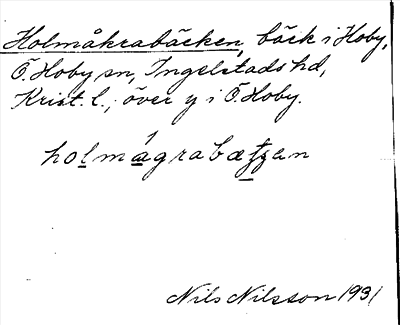 Holmåkrabäcken, bäck i Hoby,
Ö. Hoby sn, Ingelstads hd,
Krist. l., över y i Ö. Hoby.
holmágrabæʃʒan
Nils Nilsson 1931